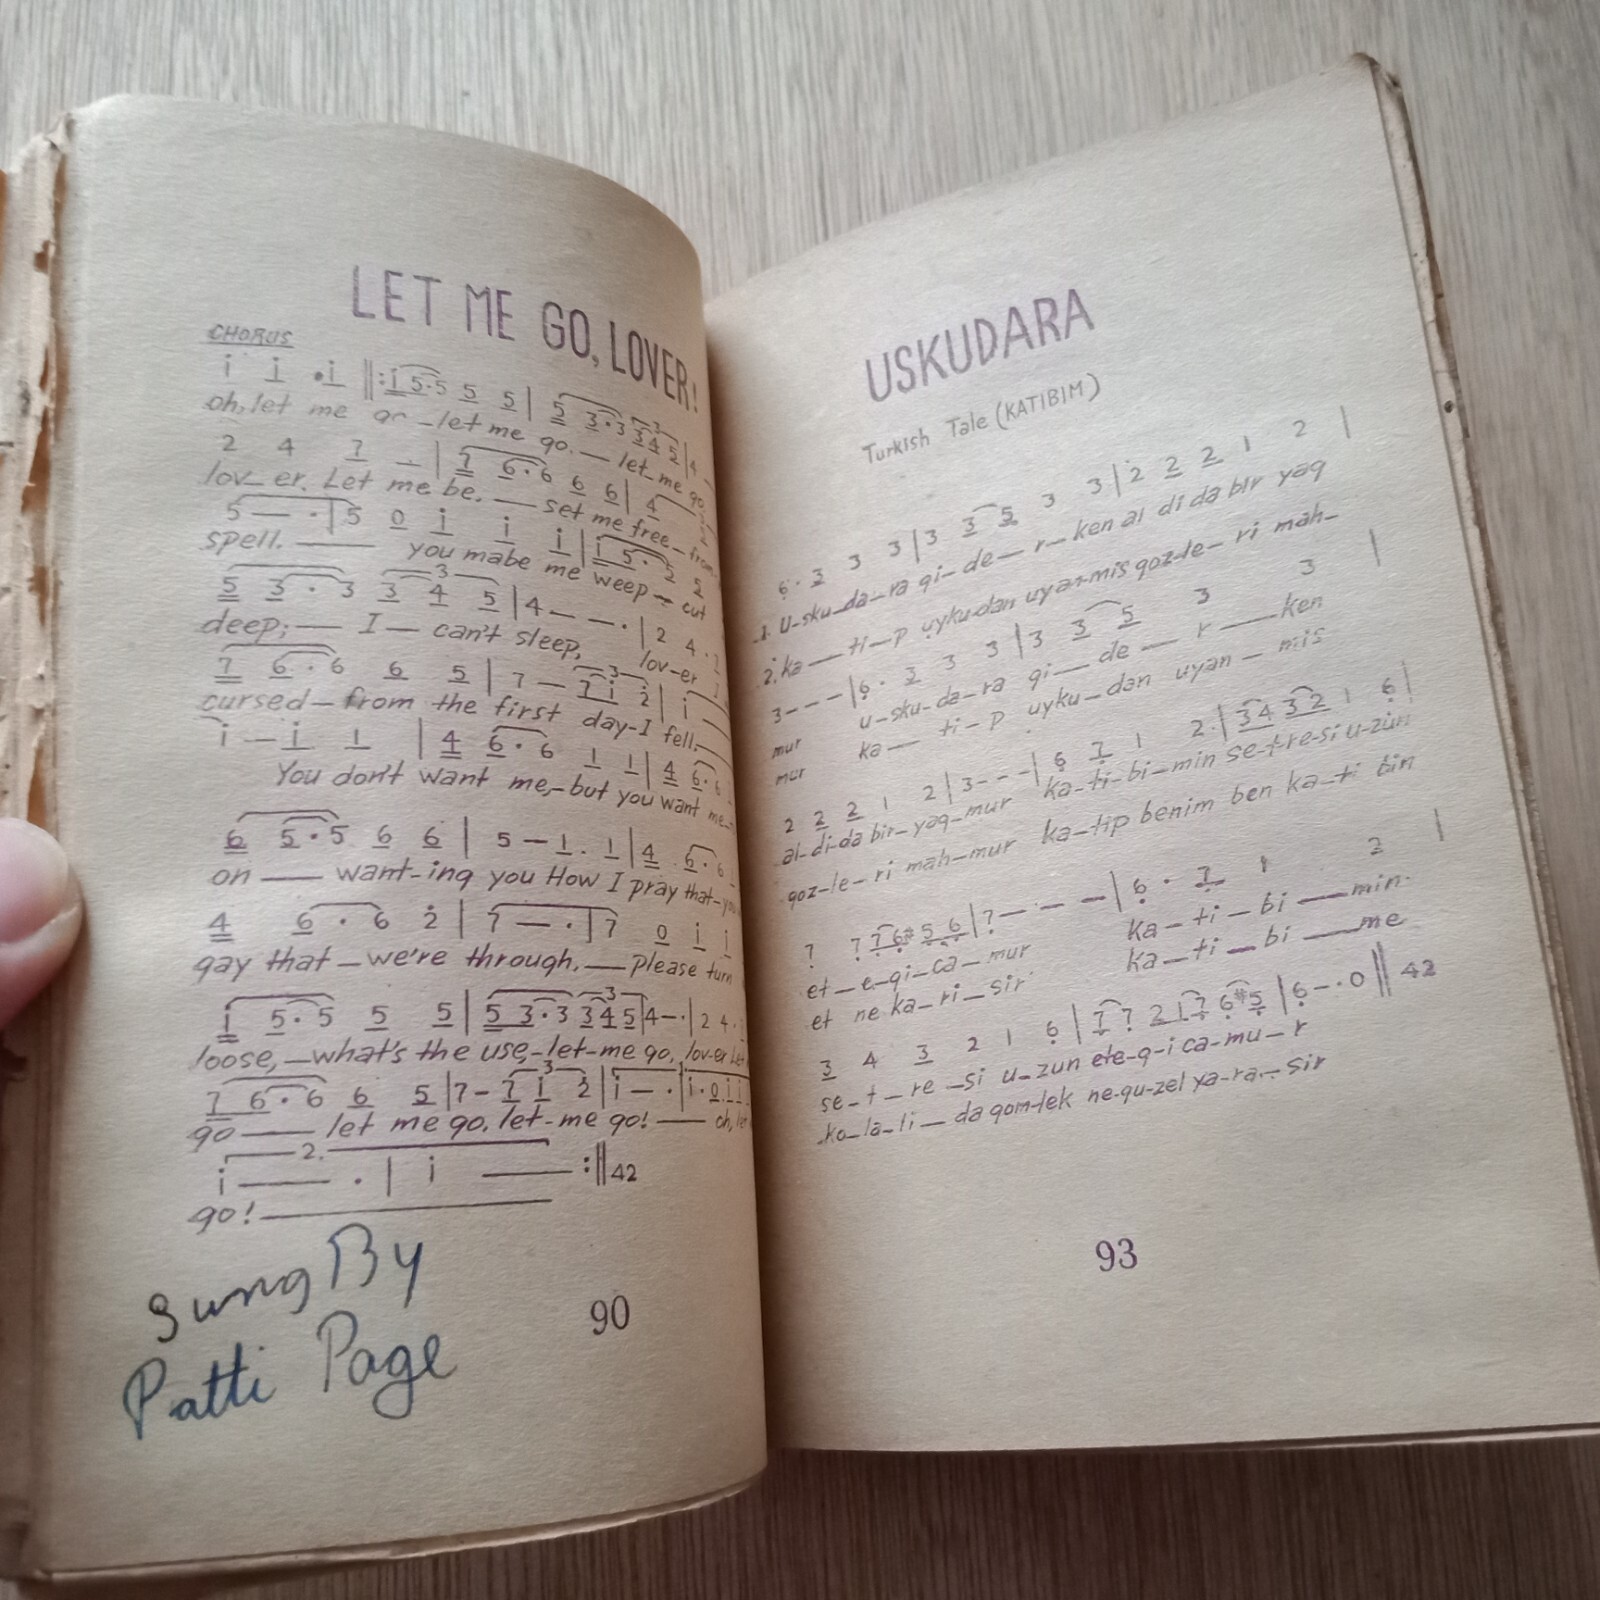 LET ME GO, LOVER!
CHORUS
i i . i ||: i 5.5 5 5 | 5 3.3 3 4 5 | 4
oh, let me go _ let me go. — let me go
2 4 7 _ | 7 6.6 6 6 | 4
lov_er. Let me be. — set me free_from
5 — . | 5 0 i i i | i 5. 5 5
spell. — you mabe me weep — cut
5 3 . 3 3 4 5 | 4 — — . | 2 4 .
deep; — I — can't sleep, lov-er
7 6 . 6 6 5 | 7 — 7 i 2 | i
cursed — from the first day-I fell.
i — i 1 | 4 6 . 6 1 1 | 4 6 . 6
You don't want me,-but you want me
6 5 . 5 6 6 | 5 — 1 . 1 | 4 6 . 6
on — want-ing you How I pray that
4 6 . 6 2 | 7 — . | 7 0 i i
gay that — we're through. — please turn
i 5 . 5 5 5 | 5 3 . 3 3 4 5 | 4 — . | 2 4 .
loose, — what's the use,-let-me go, lov-er Let
7 6 . 6 6 5 | 7 - 7 i 2 | i — . | i . 0 i i
go — let me go, let-me go! — oh, let
2.
i — . | i — :|| 42
go! —
Sung By
Patti Page
90
USKUDARA
Turkish Tale (KATIBIM)
6 . 3 3 3 | 3 3 5 3 3 | 2 2 2 1 2 |
1. U-sku_da_ra gi-de — r — ken al di da bir yag
2. ka — ti-p uyku-dan uyan-mis goz-le-ri mah-
3 - - - | 6 . 3 3 3 | 3 3 5 3 3 |
mur u-sku-da-ra gi — de — r — ken
mur ka — ti-p uyku-dan uyan — mis
2 2 2 1 2 | 3 - - - | 6 7 1 2 . | 3 4 3 2 1 6 |
al-di-da bir-yag-mur ka-ti-bi-min se-t-re-si u-zun
goz-le-ri mah-mur ka-tip benim ben ka-ti bin
7 7 7 6 #5 6 | 7 — — — | 6 . 7 1 2 |
et — e-gi-ca-mur ka-ti-bi — min-
et ne ka-ri-sir ka-ti — bi — me
3 4 3 2 1 6 | 7 7 2 1 7 6 #5 | 6 — . 0 || 42
se-t-re-si u-zun ete-g-i ca-mu-r
ko-la-li — da gom-lek ne-gu-zel ya-ra-sir
93